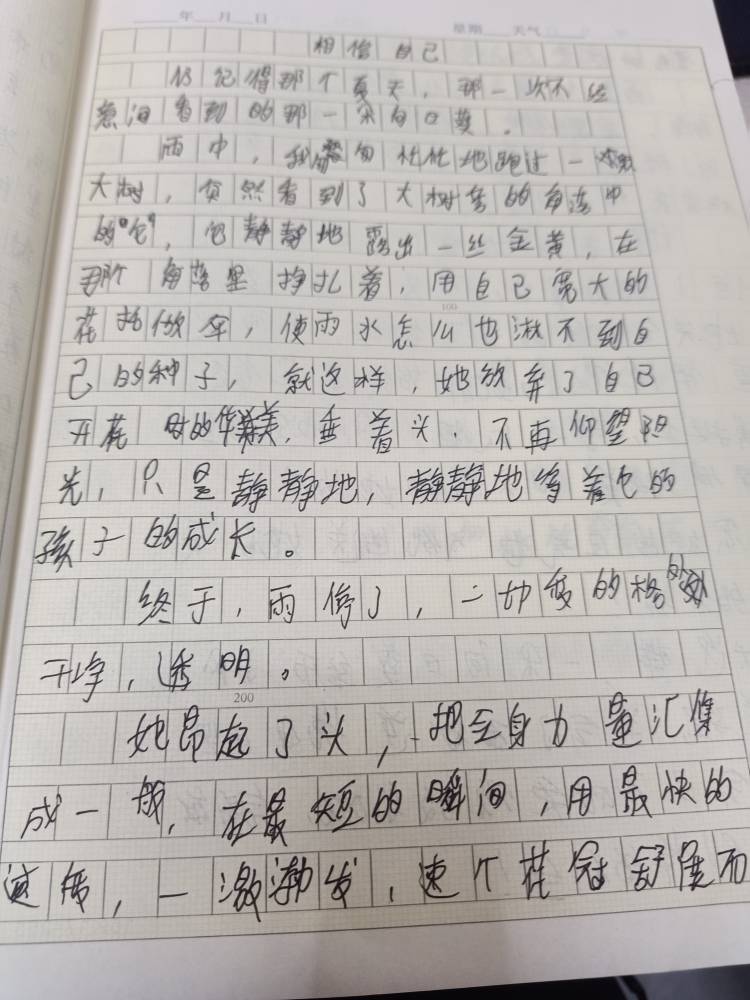 年 月 日 星期 天气
相信自己
仍记得那个夏天，那一次不经
意间看到的那一朵向日葵。
雨中，我匆忙忙地跑过一
大树，突然看到了大树旁的角落中
的“它”，它静静地露出一丝金黄，在
那个角落里挣扎着，用自己宽大的
花托做伞，使雨水怎么也淋不到自
己的种子，就这样，她放弃了自己
开花时的华美，垂着头，不再仰望阳
光，只是静静地，静静地等着它的
孩子的成长。
终于，雨停了，一切变的格外
干净，透明。
200
她昂起了头，把全身力量汇集
成一般，在最短的瞬间，用最快的
速度，一激渤发，速个花冠舒展而